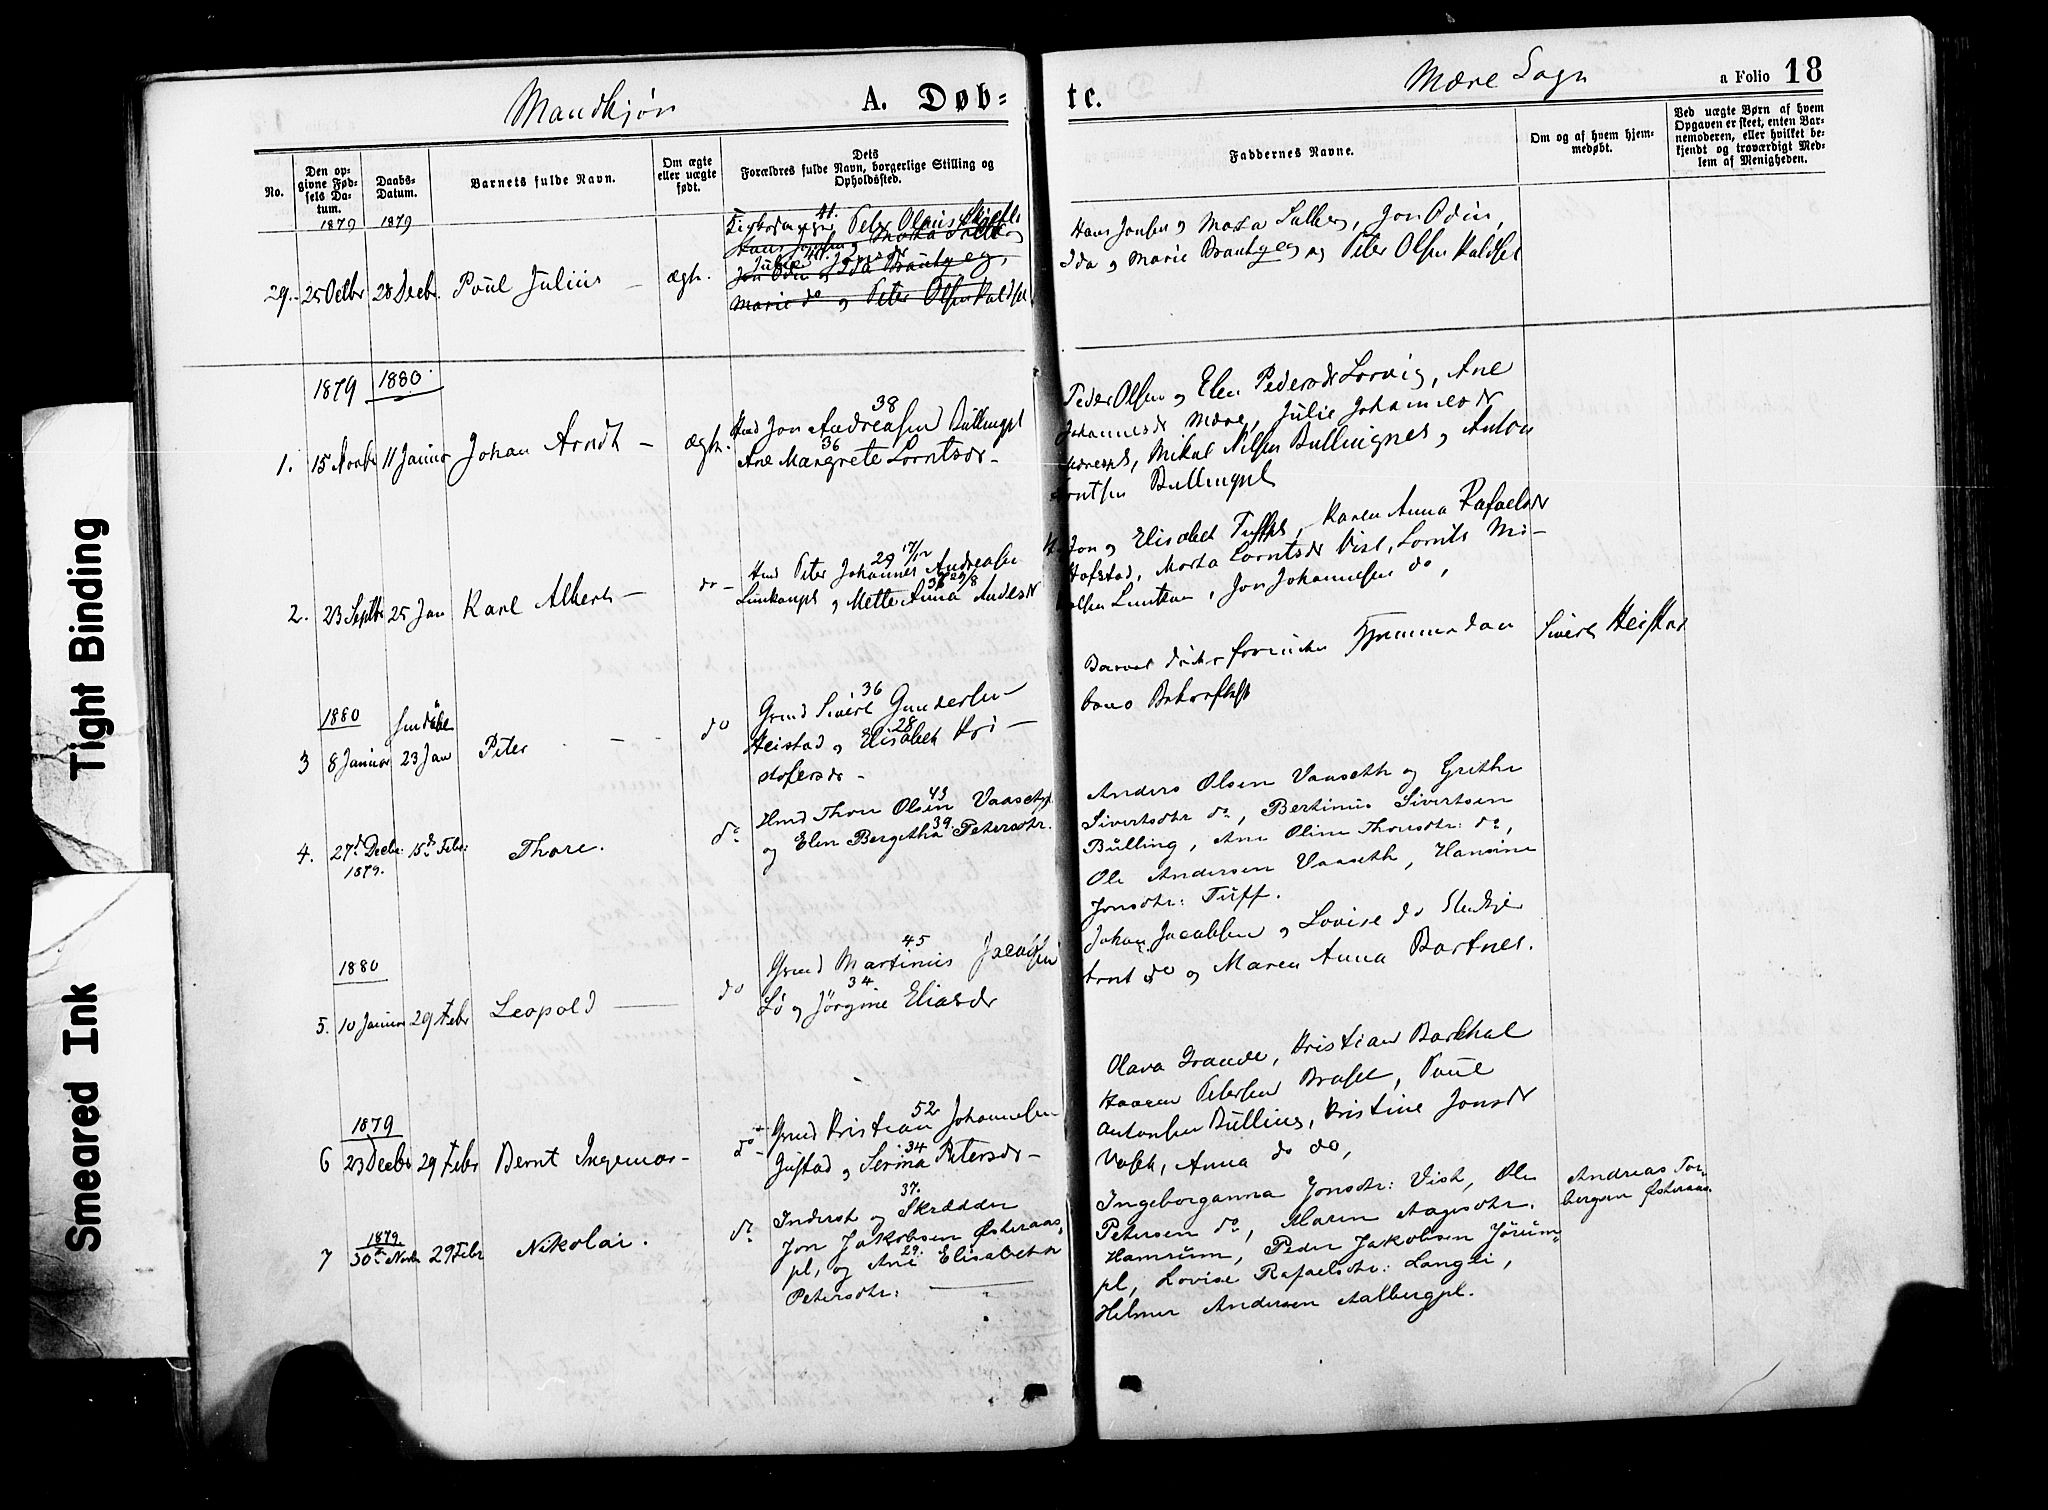 Mandkjøn
A. Døb=
te.
Mære Sogn
a Folio 18
No.
Den op-
givne Fød-
sels Da-
tum.
Daabs-
Datum.
Barnets fulde Navn.
Om ægte
eller uægte
født.
Dets
Forældres fulde Navn, borgerlige Stilling og
Opholdssted.
Faddernes Navne.
Om og af hvem hjem-
medøbt.
Ved uægte Børn af hvem
Opgaven er skeet, enten Bar-
nemoderen, eller hvilket be-
kjendt og troværdigt Med-
lem af Menigheden.
1879 1879
29. 25 Octbr 28 Decb. Paul Julius ægt.
41.
Peter Olaus
Marta
Jon Odin og Ida
Marie do og Peter Olsen
Hans Jonsen og Marta Salberg, Jon Odin,
Ida og Marie og Peter Olsen
1879 1880
1. 15 Novbr 11 Januar Johan Arndt – ægt.
38
Hmd Jon Andreasen Bullingpl
36
Ane Margrete Lorntsdr –
Peder Olsen og Elen Pedersdr Lorvig, Ane
Johannesdr Mære, Julie Johannesdr
Mærespl, Mikal Nilsen Bullingnes og Anton
Lorntsen Bullingpl
2. 23 Septbr 25 Jan Karl Albert – do –
29 17/12
Hmd Peter Johannes Andreasen
36 29/8
Lunkanpl og Mette Anna Andersdr
Jon og Elisabet Tuffpl, Karen Anna Rafaelsdr
Hofstad, Marta Lorntsdr Vist, Lornts Mi-
kalsen Lunkan, Jon Johannesen do,
1880
3 8 Januar 23 Jan Peter – – do
36
Grmd Sivert Gundersen
28
Heistad og Elisabet Kri –
stofersdr –
Barnet døde forinden Hjemmedaa
bens Bekræftelse
Sivert Heistad
4. 27de Decbr. 15de Febr. Thore. do
1879.
43
Hmd Thore Olsen Vaasetpl
39.
og Elen Bergitha Petersdtr.
Anders Olsen Vaaseth og Grethe
Sivertsdtr do, Bertinus Sivertsen
Bulling, Ane Oline Thoresdtr: do,
Ole Andersen Vaaseth, Hansine
Jonsdtr: Tuff.
1880
5. 10 Januar 29 Febr Leopold — do
45
Grmd Martinus Jacobsen
34
Lø og Jørgine Eliasdr
Johan Jacobsen og Lovise do
Arnt do og Maren Anna Bartnes.
1879
6 23 Decbr 29 Febr Bernt Ingemar – do –
52
Grmd Kristian Johannesen
34
Gustad og Serina Petersdr –
Olava Grande, Kristian Bardhal
Haaren Petersen Braset, Paul
Antonsen Bulling, Kristine Jonsdr
Vaset, Anna do do,
1879
7 30te Novbr 29 Febr Nikolai. do
37.
Inderst og Skrædder
Jon Jakobsen Østeraas-
29.
pl, og Ane Elisabeth
Petersdtr: —
Ingeborganna Jonsdtr: Vist, Ole
Petersen do, Maren Aagesdtr.
Hamrum, Peder Jakobsen Jørum-
pl, Lovise Rafaelsdtr: Langli,
Helmer Andersen Aalbergpl.
Andreas Tor-
bergsen Østeraas.
Tight Binding
Smeared Ink